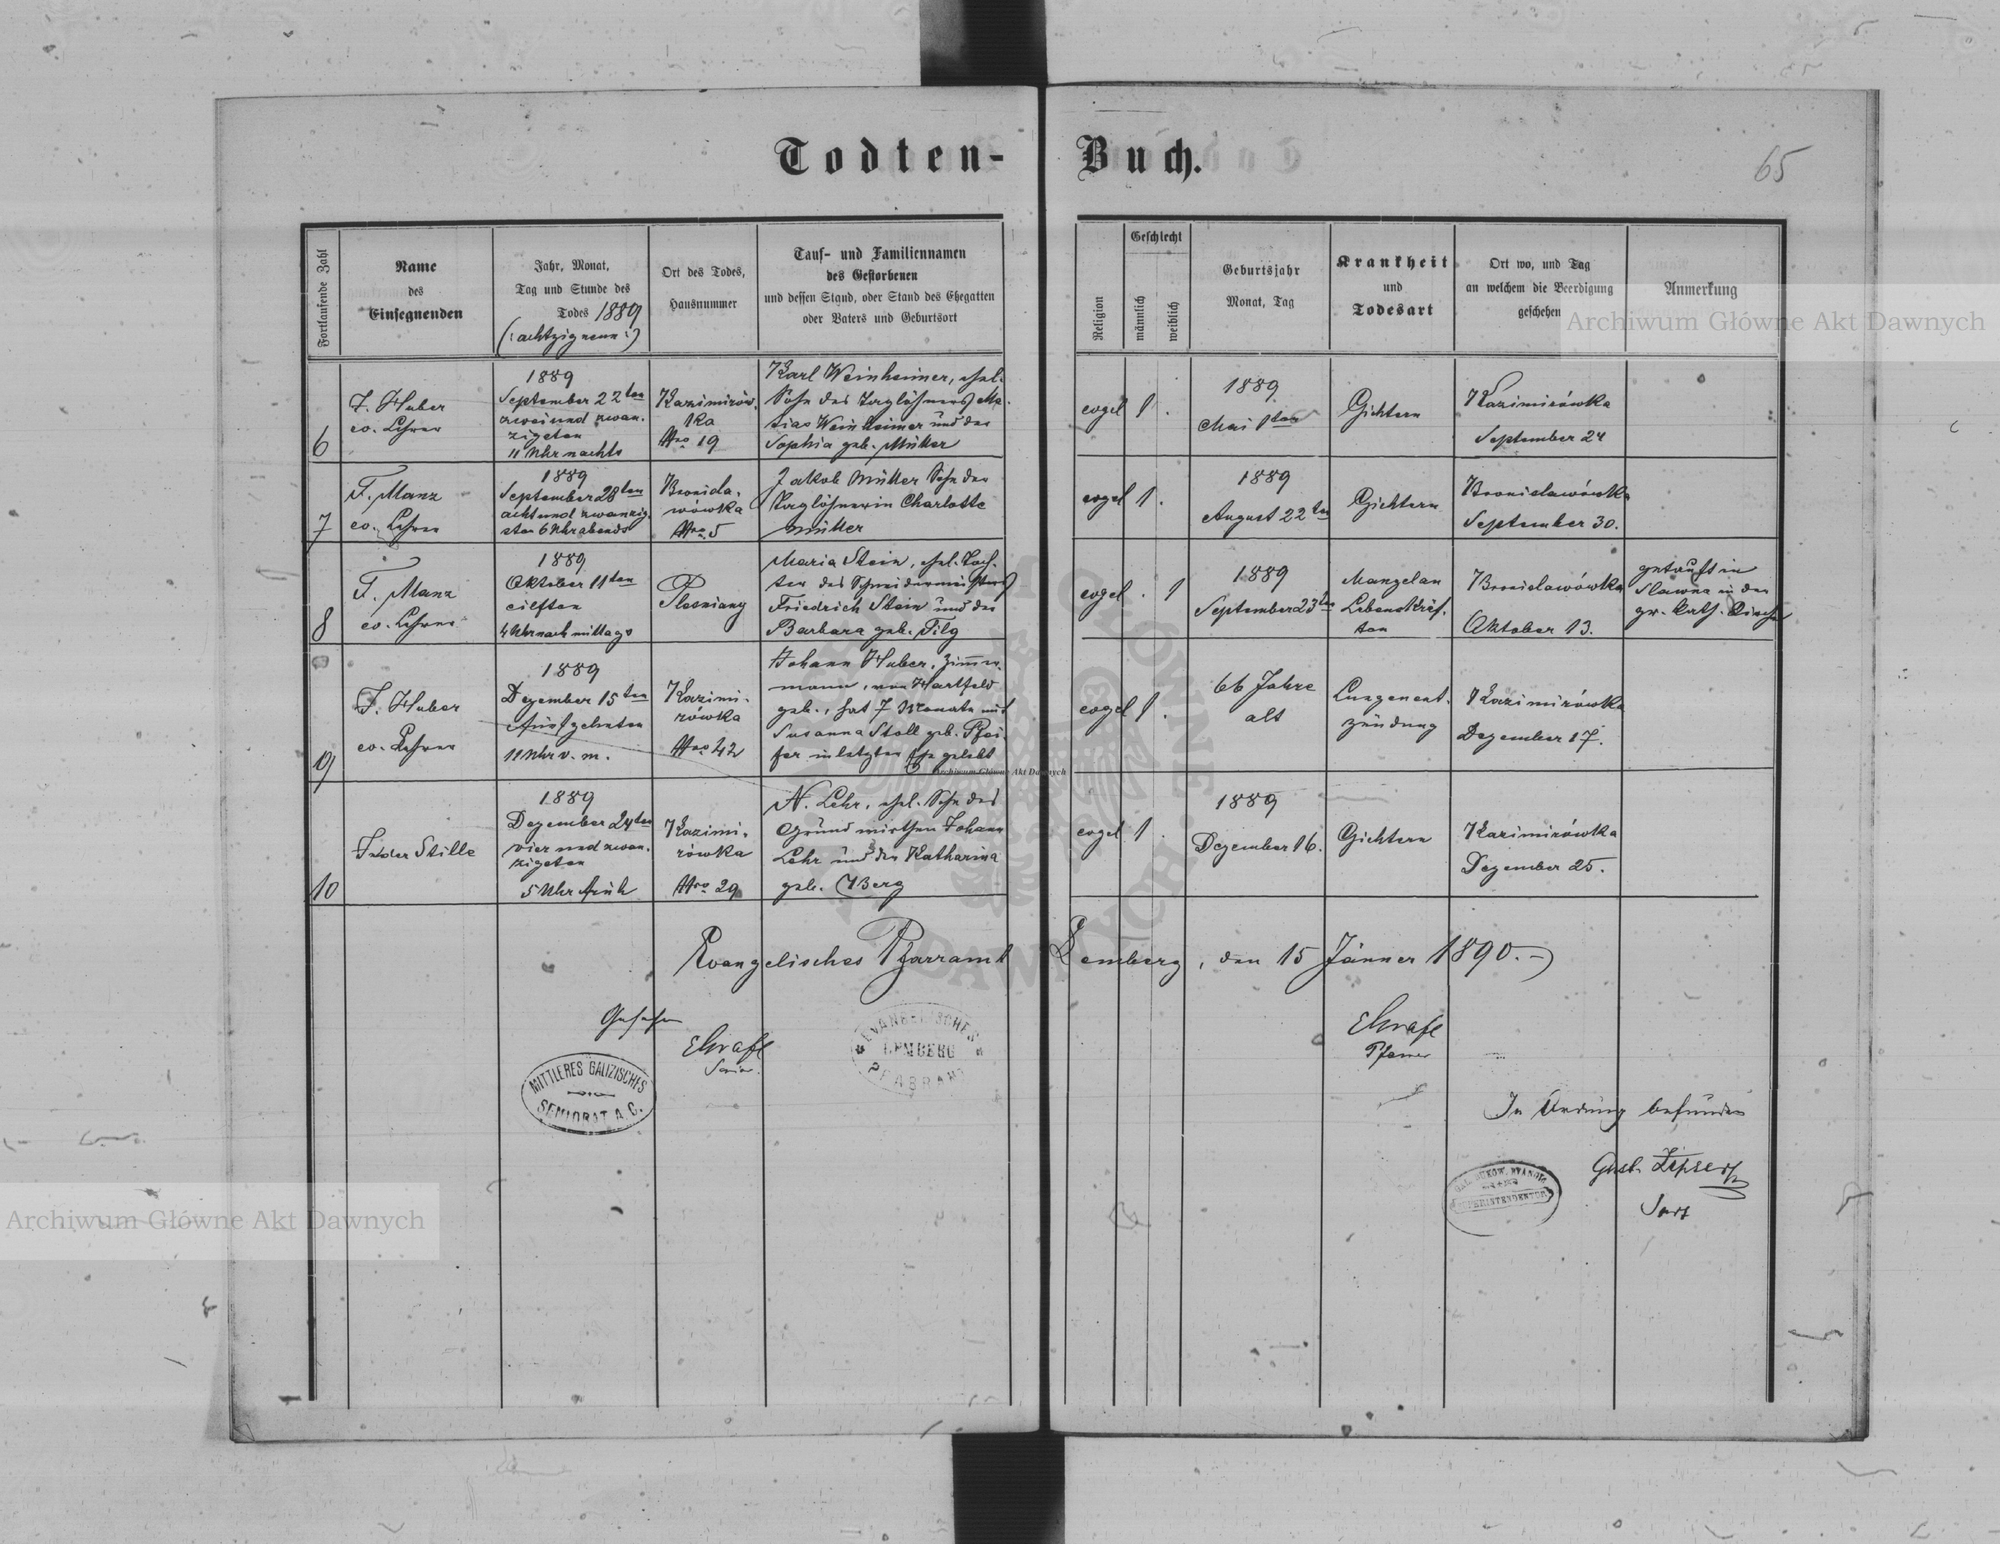 Todten-Buch.
65
Fortlaufende Zahl
Name
des
Einsegnenden
Jahr, Monat,
Tag und Stunde des
Todes 1889
(: achtzigneun :)
Ort des Todes,
Hausnummer
Tauf- und Familiennamen
des Gestorbenen
und dessen Stand, oder Stand des Ehegatten
oder Vaters und Geburtsort
Religion
Geschlecht
männlich
weiblich
Geburtsjahr
Monat, Tag
Krankheit
und
Todesart
Ort wo, und Tag
an welchem die Beerdigung
geschehen
Anmerkung
Archiwum Główne Akt Dawnych
6
F. Huber
ev. Lehrer
1889
September 22ten
zweiund zwan-
zigsten
11 Uhr nachts
Kazimirów-
ka
Nro 19
Karl Weinheimer, ehel.
Sohn des Taglöhners Ma-
tias Weinheimer und der
Sophia geb. Müller
evgel
1
.
1889
Mai 1ten
Gichtern
Kazimirówka
September 24
7
F. Manz
ev. Lehrer
1889
September 28ten
achtund zwanzig-
sten 6 Uhr abends
Bronisla-
wówka
Nro. 5
Jakob Müller Sohn der
Taglöhnerin Charlotte
Müller
evgel
1
.
1889
August 22ten
Gichtern
Bronislawówka
September 30.
8
F. Manz
ev. Lehrer
1889
Oktober 11ten
eilften
4 Uhr nach mittags
Plesniany
Maria Stein, ehel. Toch-
ter des Schneidermeisters
Friedrich Stein und der
Barbara geb. Filg
evgel
.
1
1889
September 23ten
Mangel an
Lebenskräf-
ten
Bronislawówka
Oktober 13.
getauft in
Slawna in der
gr. kath. Kirche
9
F. Huber
ev. Lehrer
1889
Dezember 15ten
fünfzehnten
11 Uhr v. m.
Kazimi-
rówka
Nro 42
Johann Huber, Zimmer-
mann, von Hartfeld
geb., hat 7 Monate mit
Susanna Stoll geb. Pfei-
fer in letzter Ehe gelebt
evgel
1
.
66 Jahre
alt
Lungenent-
zündung
Kazimirówka
Dezember 17.
Archiwum Główne Akt Dawnych
10
Stille
1889
Dezember 24ten
vier und zwan-
zigsten
5 Uhr früh
Kazimi-
rówka
Nro 29
N. Lehr, ehel. Sohn des
Grundwirthen Johann
Lehr und der Katharina
geb. Berg
evgel
1
.
1889
Dezember 16.
Gichtern
Kazimirówka
Dezember 25.
Evangelisches Pfarramt Lemberg, den 15 Jänner 1890.
Gesehen
EKrafl
Senior.
MITTLERES GALIZISCHES
SENIORAT A. C.
EVANGELISCHES
LEMBERG
PFARRAMT
EKrafl
Pfarrer
In Ordnung befunden
GAL. BUKOW. EVANG.
SUPERINTENDENTUR
Gust. Zipser
Archiwum Główne Akt Dawnych